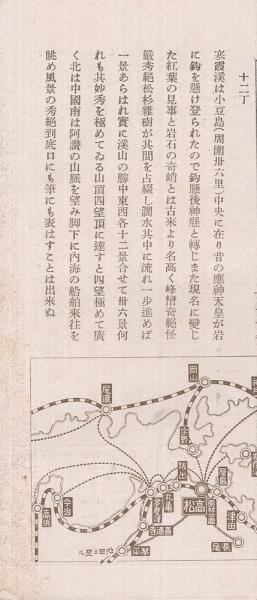 十二丁
寒霞溪は小豆島(周圍卅六里)中央に在り昔の應神天皇が岩
に鈎を懸け登られたので鈎懸後神懸と轉じまた現名に變じ
た紅葉の見事と岩石の奇峭とは古來より名高く峰巒奇絶怪
巖秀絶松杉雜樹が其間を占綴し澗水其中に流れ一步進めば
一景あらはれ實に溪山の勝中東西各十二景合せて卅六景何
れも其妙秀を極めてゐる山頂四望頂に達すと四望極めて廣
く北は中國南は阿讃の山脈を望み脚下に内海の船舶來往を
眺め風景の秀絶到底口にも筆にも表はすことは出來ぬ
岡山
尾道
宇野
高松
坂出
丸龜
多度津
善通寺
琴平
津田
長尾
今治
高濱
池田ニ至ル